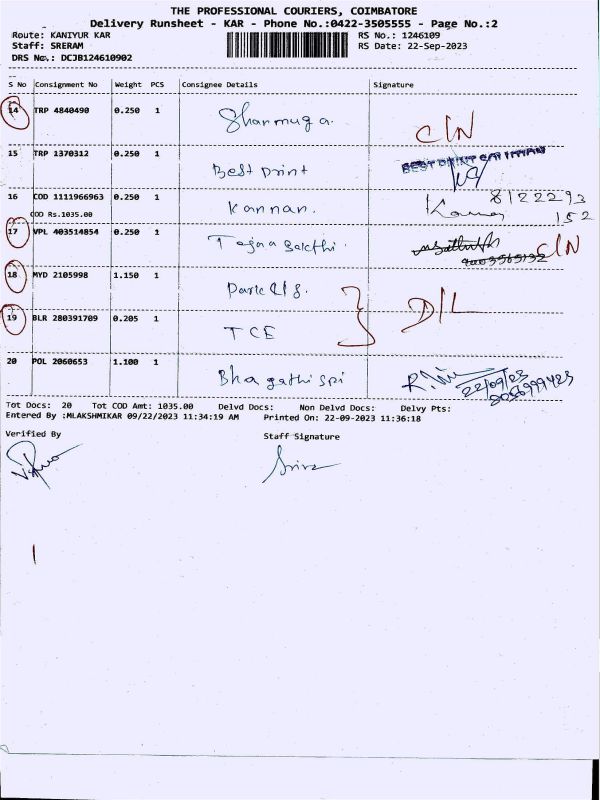 THE PROFESSIONAL COURIERS, COIMBATORE
Delivery Runsheet - KAR - Phone No.:0422-3505555 - Page No.:2
Route: KANIYUR KAR
RS No.: 1246109
Staff: SRERAM
RS Date: 22-Sep-2023
DRS No.: DCJB124610902
S No Consignment No Weight PCS Consignee Details Signature
14 TRP 4840490 0.250 1 Shanmuga. C/N
15 TRP 1370312 0.250 1 Best print BEST PRINT
16 COD 1111966963 0.250 1 Kannan. 8122293
COD Rs.1035.00 152
17 VPL 403514854 0.250 1 C/N
18 MYD 2105998 1.150 1 D/L
19 BLR 280391709 0.205 1 TCE
20 POL 2060653 1.100 1 22/09/23
Tot Docs: 20 Tot COD Amt: 1035.00 Delvd Docs: Non Delvd Docs: Delvy Pts:
Entered By :MLAKSHMIKAR 09/22/2023 11:34:19 AM Printed On: 22-09-2023 11:36:18
Verified By Staff Signature